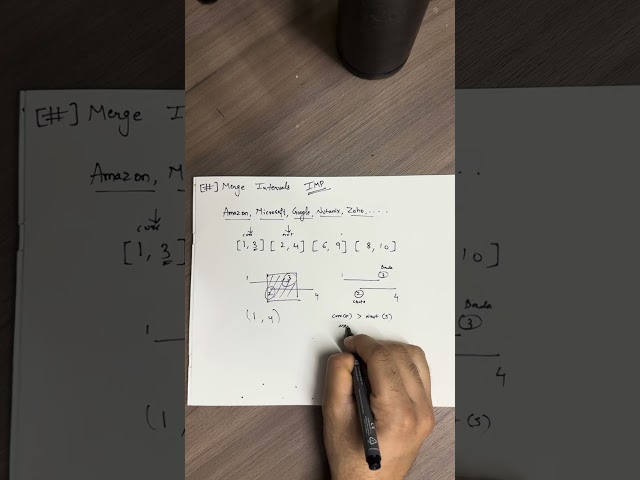 [#] Merge Intervals IMP
Amazon, Microsoft, Google, Nutanix, Zoho, .....
curr nxt
[1, 3] [2, 4] [6, 9] [8, 10]
1 3 1 Bada 3
2 4 2 4
Chota
(1, 4) curr(e) > next (s)